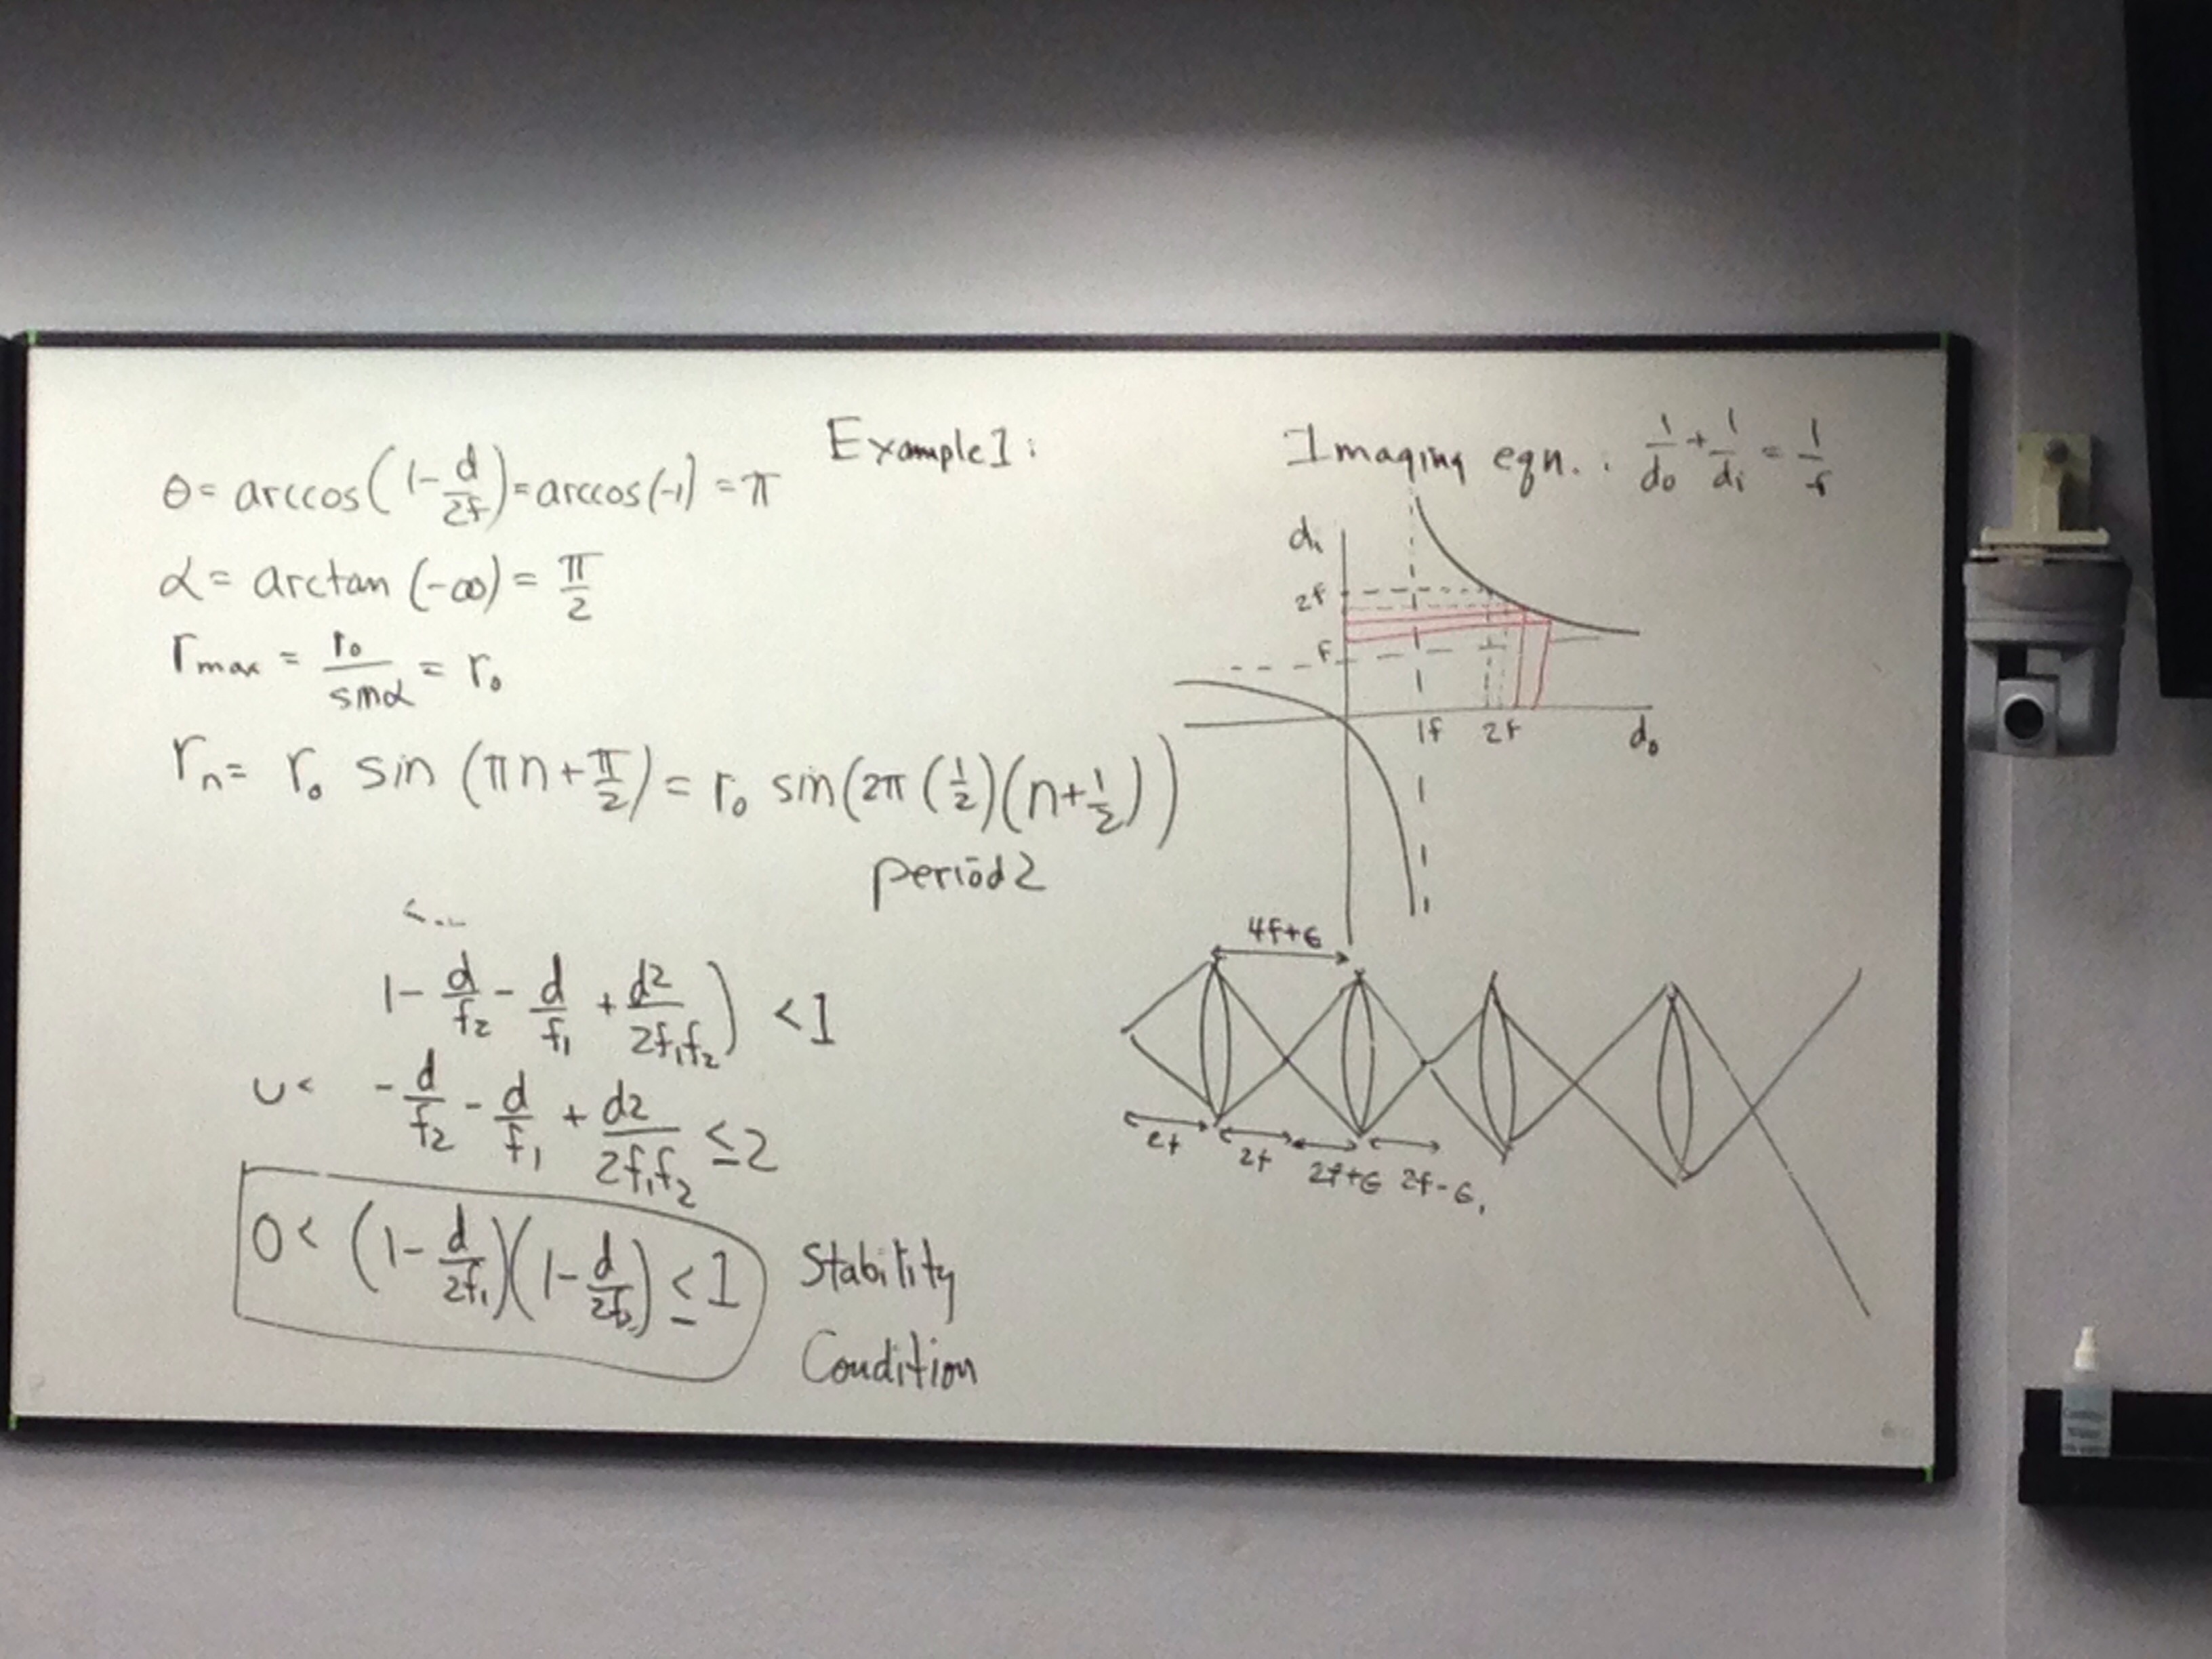 θ = arccos(1 - d/2f) = arccos(-1) = π
α = arctan (-∞) = π/2
r_max = r₀/sinα = r₀
r_n = r₀ sin (πn + π/2) = r₀ sin(2π (1/2)(n + 1/2))
period 2
<...
1 - d/f₂ - d/f₁ + d²/2f₁f₂) < 1
0 < - d/f₂ - d/f₁ + d²/2f₁f₂ ≤ 2
0 < (1 - d/2f₁)(1 - d/2f₂) ≤ 1
Stability
Condition
Example 1:
Imaging eqn. : 1/d₀ + 1/dᵢ = 1/f
dᵢ
2f
f
1f 2f d₀
4f+ϵ
2f 2f 2f+ϵ 2f-ϵ₁